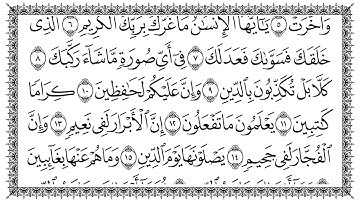 وَأَخَّرَتْ ۝٥ يَٰٓأَيُّهَا ٱلْإِنسَٰنُ مَا غَرَّكَ بِرَبِّكَ ٱلْكَرِيمِ ۝٦ ٱلَّذِى
خَلَقَكَ فَسَوَّىٰكَ فَعَدَلَكَ ۝٧ فِىٓ أَىِّ صُورَةٍ مَّا شَآءَ رَكَّبَكَ ۝٨
كَلَّا بَلْ تُكَذِّبُونَ بِٱلدِّينِ ۝٩ وَإِنَّ عَلَيْكُمْ لَحَٰفِظِينَ ۝١٠ كِرَامًا
كَٰتِبِينَ ۝١١ يَعْلَمُونَ مَا تَفْعَلُونَ ۝١٢ إِنَّ ٱلْأَبْرَارَ لَفِى نَعِيمٍ ۝١٣ وَإِنَّ
ٱلْفُجَّارَ لَفِى جَحِيمٍ ۝١٤ يَصْلَوْنَهَا يَوْمَ ٱلدِّينِ ۝١٥ وَمَا هُمْ عَنْهَا بِغَآئِبِينَ